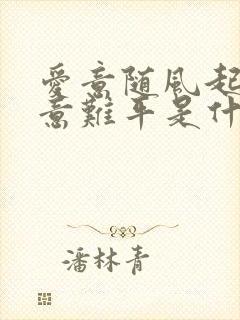 愛意随風起
意難平是什
潘林青